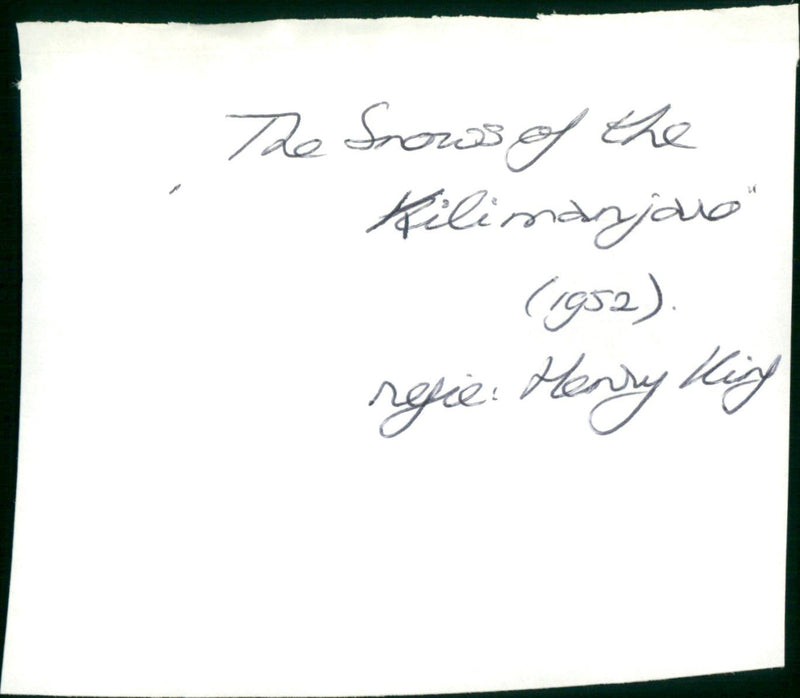 The Snows of the
Kilimanjaro"
(1952).
regie: Henry King